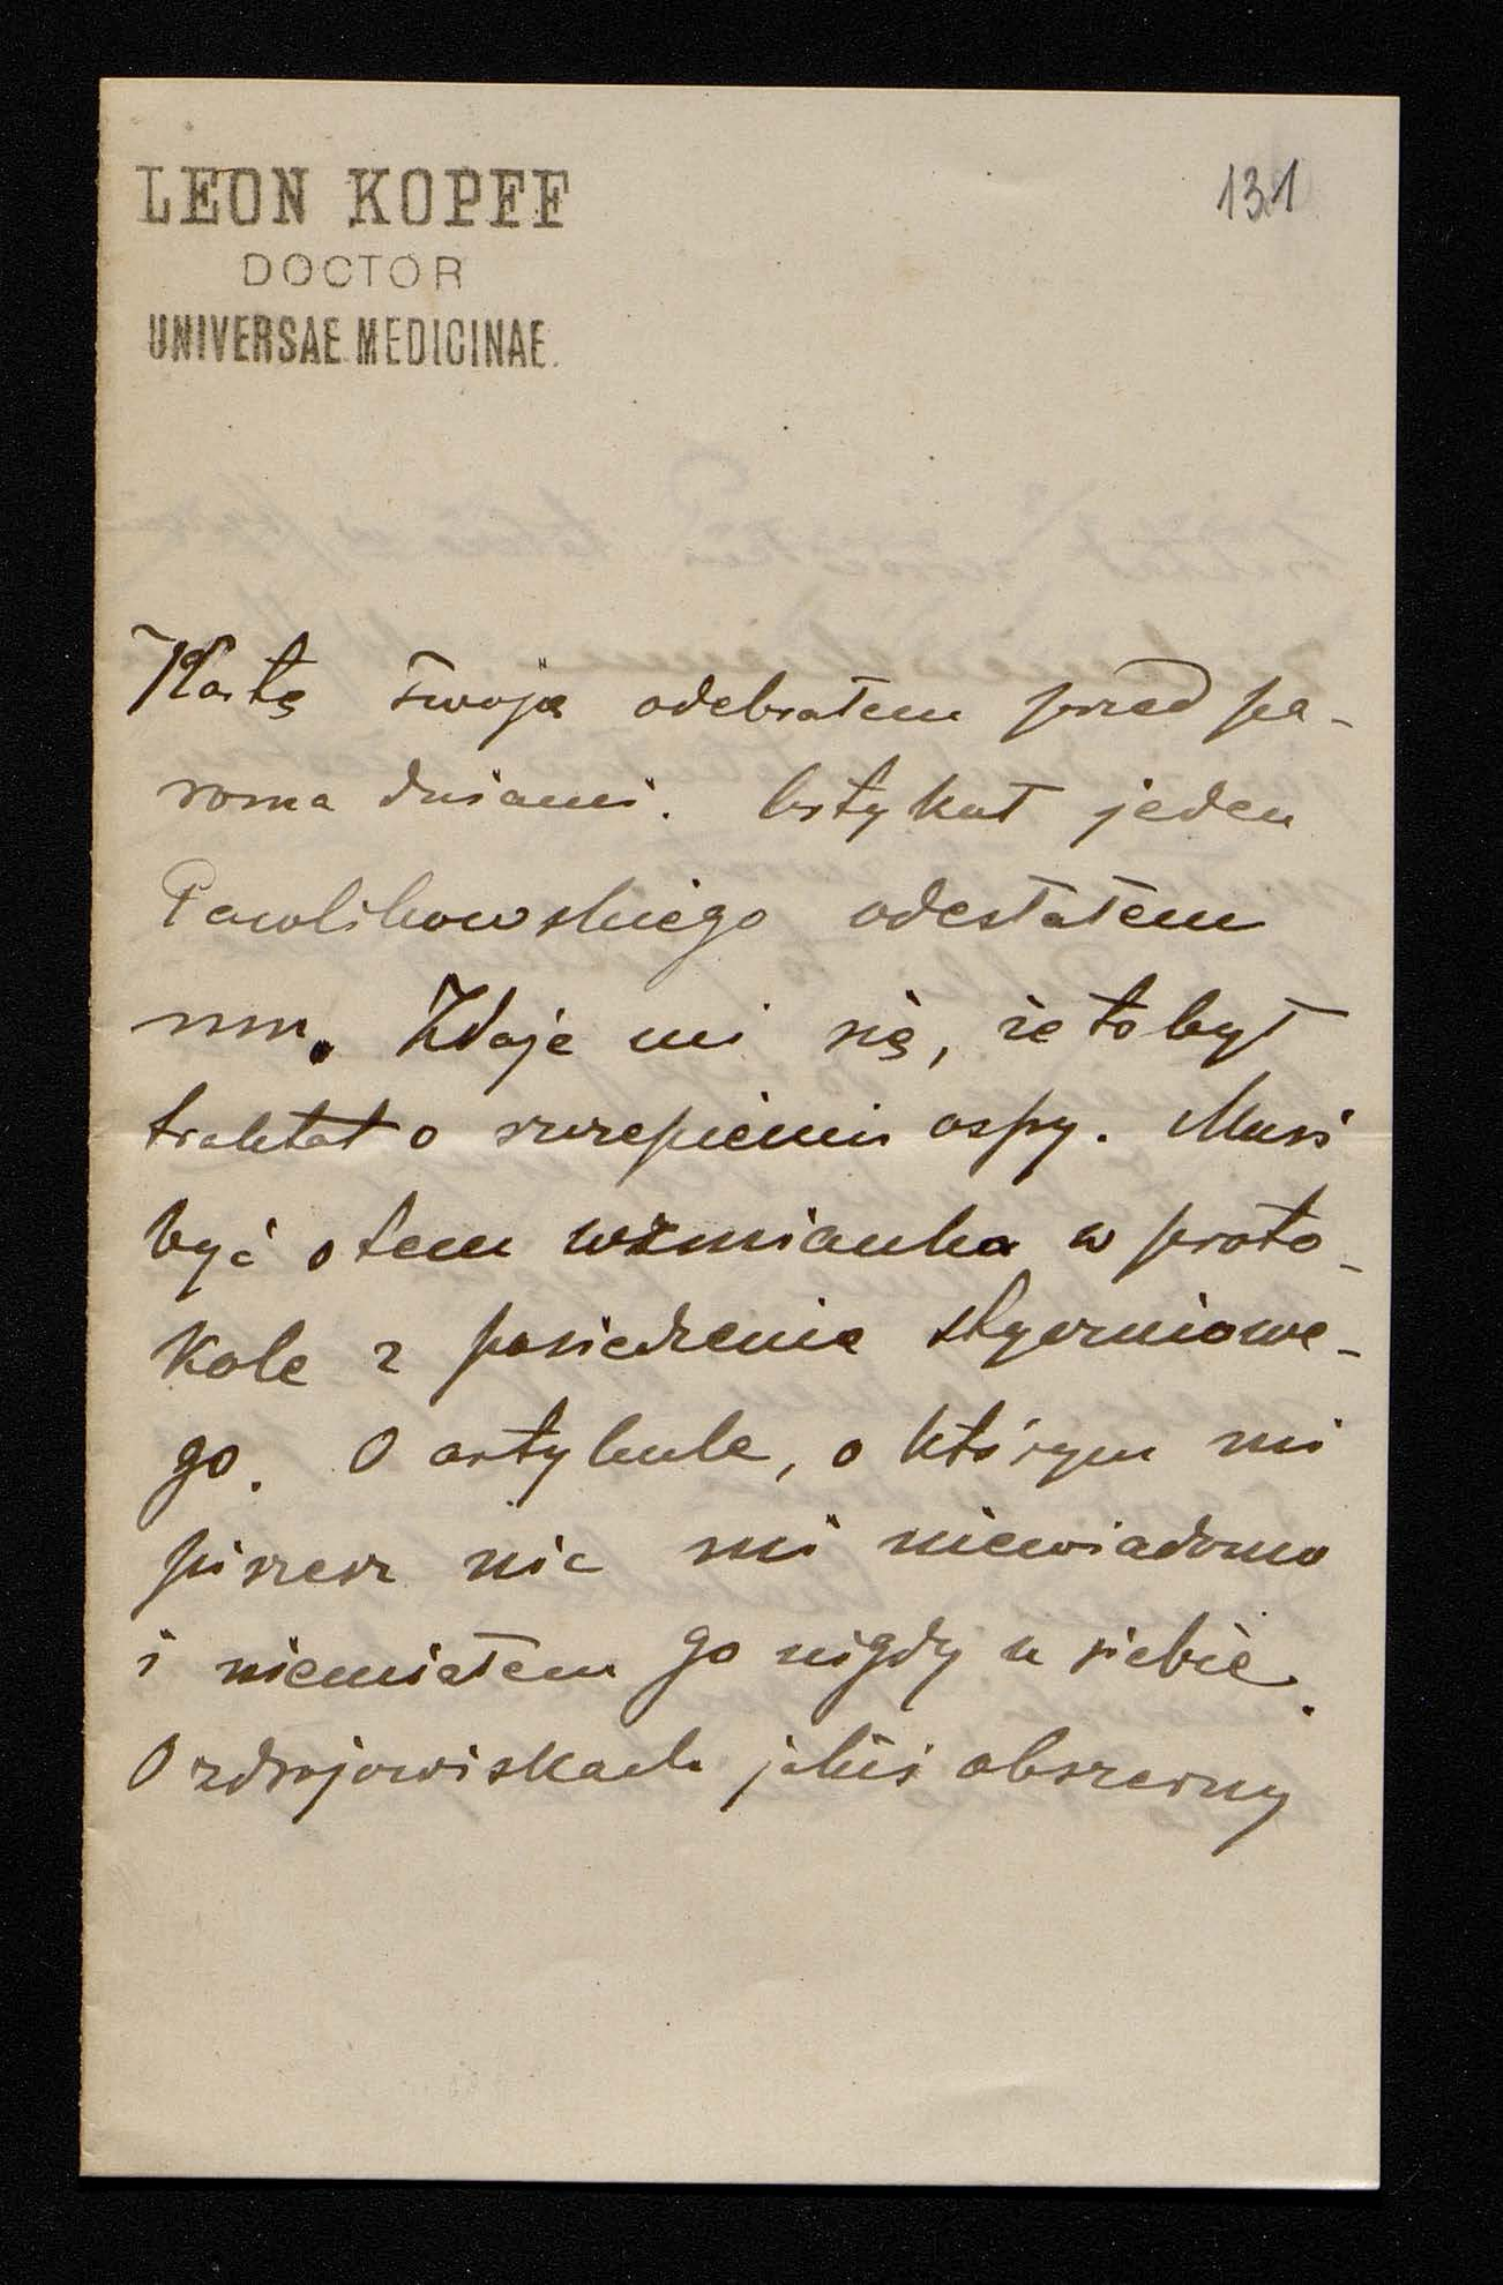 LEON KOPFF
DOCTOR
UNIVERSAE MEDICINAE.
131
Kartę Twoją odebrałem przed pa-
roma dniami. Artykuł jeden
Pawlikowskiego odesłałem
mu. Zdaje mi się, że to był
traktat o szczepieniu ospy. Musi
być o tem wzmianka w proto-
kole z posiedzenia styczniowe-
go. O artykule, o którym mi
piszesz nic mi niewiadomo
i niemiałem go nigdy u siebie.
O zdrojowiskach jakiś obszerny